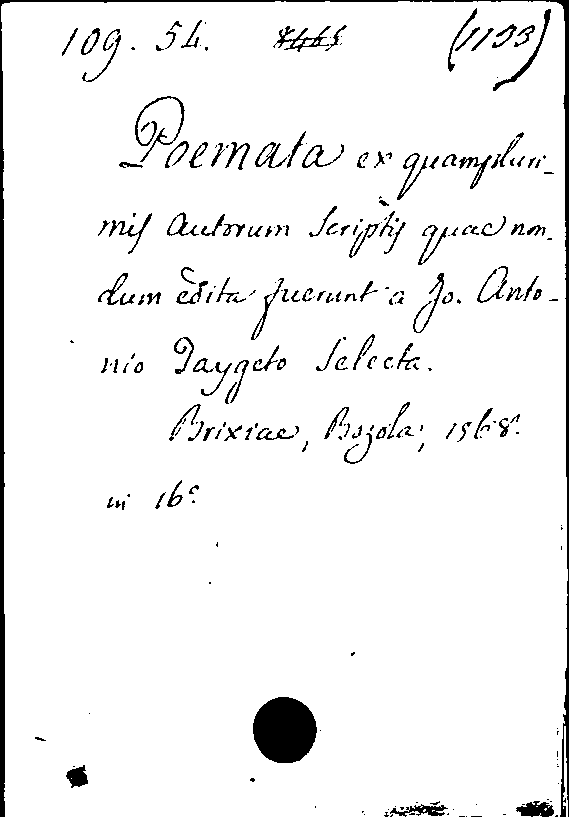 109. 54. 8465 (1193)
Poemata ex quampluri-
mis Autorum Scriptis quae non-
dum èdita fuerunt a Jo. Anto-
nio Taygeto Selecta.
Brixiae, Bozola, 1568.
in 16°